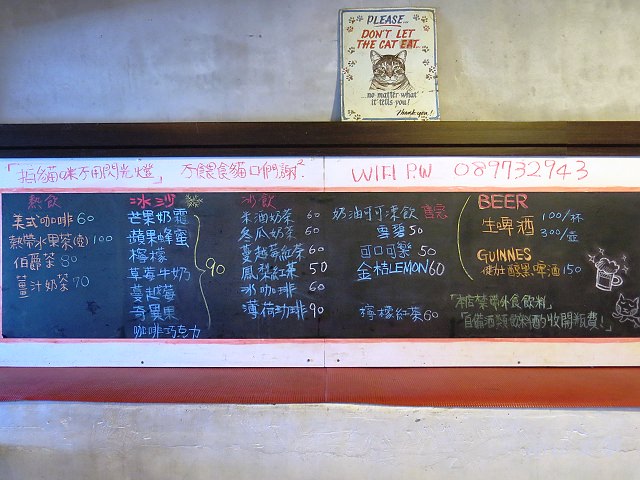 PLEASE...
DON'T LET
THE CAT EAT...
...no matter what
it tells you!
Thank you!
「拍貓咪不用閃光燈」 不餵食貓口們謝²
WIFI P.W 089732943
熱飲
美式咖啡 60
熱帶水果茶(壺) 100
伯爵茶 80
薑汁奶茶 70
冰沙
芒果奶霜
蘋果蜂蜜
檸檬
草莓牛奶
蔓越莓
奇異果
咖啡巧克力
90
冰飲
米酒奶茶 60
冬瓜奶茶 50
蔓越莓紅茶 60
鳳梨紅茶 50
冰咖啡 60
薄荷咖啡 90
奶油可可凍飲 售完
雪碧 50
可口可樂 50
金桔LEMON 60
檸檬紅茶 60
BEER
生啤酒 100/杯
300/壺
GUINNES
健力士醇黑啤酒 150
「本店禁帶外食飲料」
「自備酒類飲料酌收開瓶費」